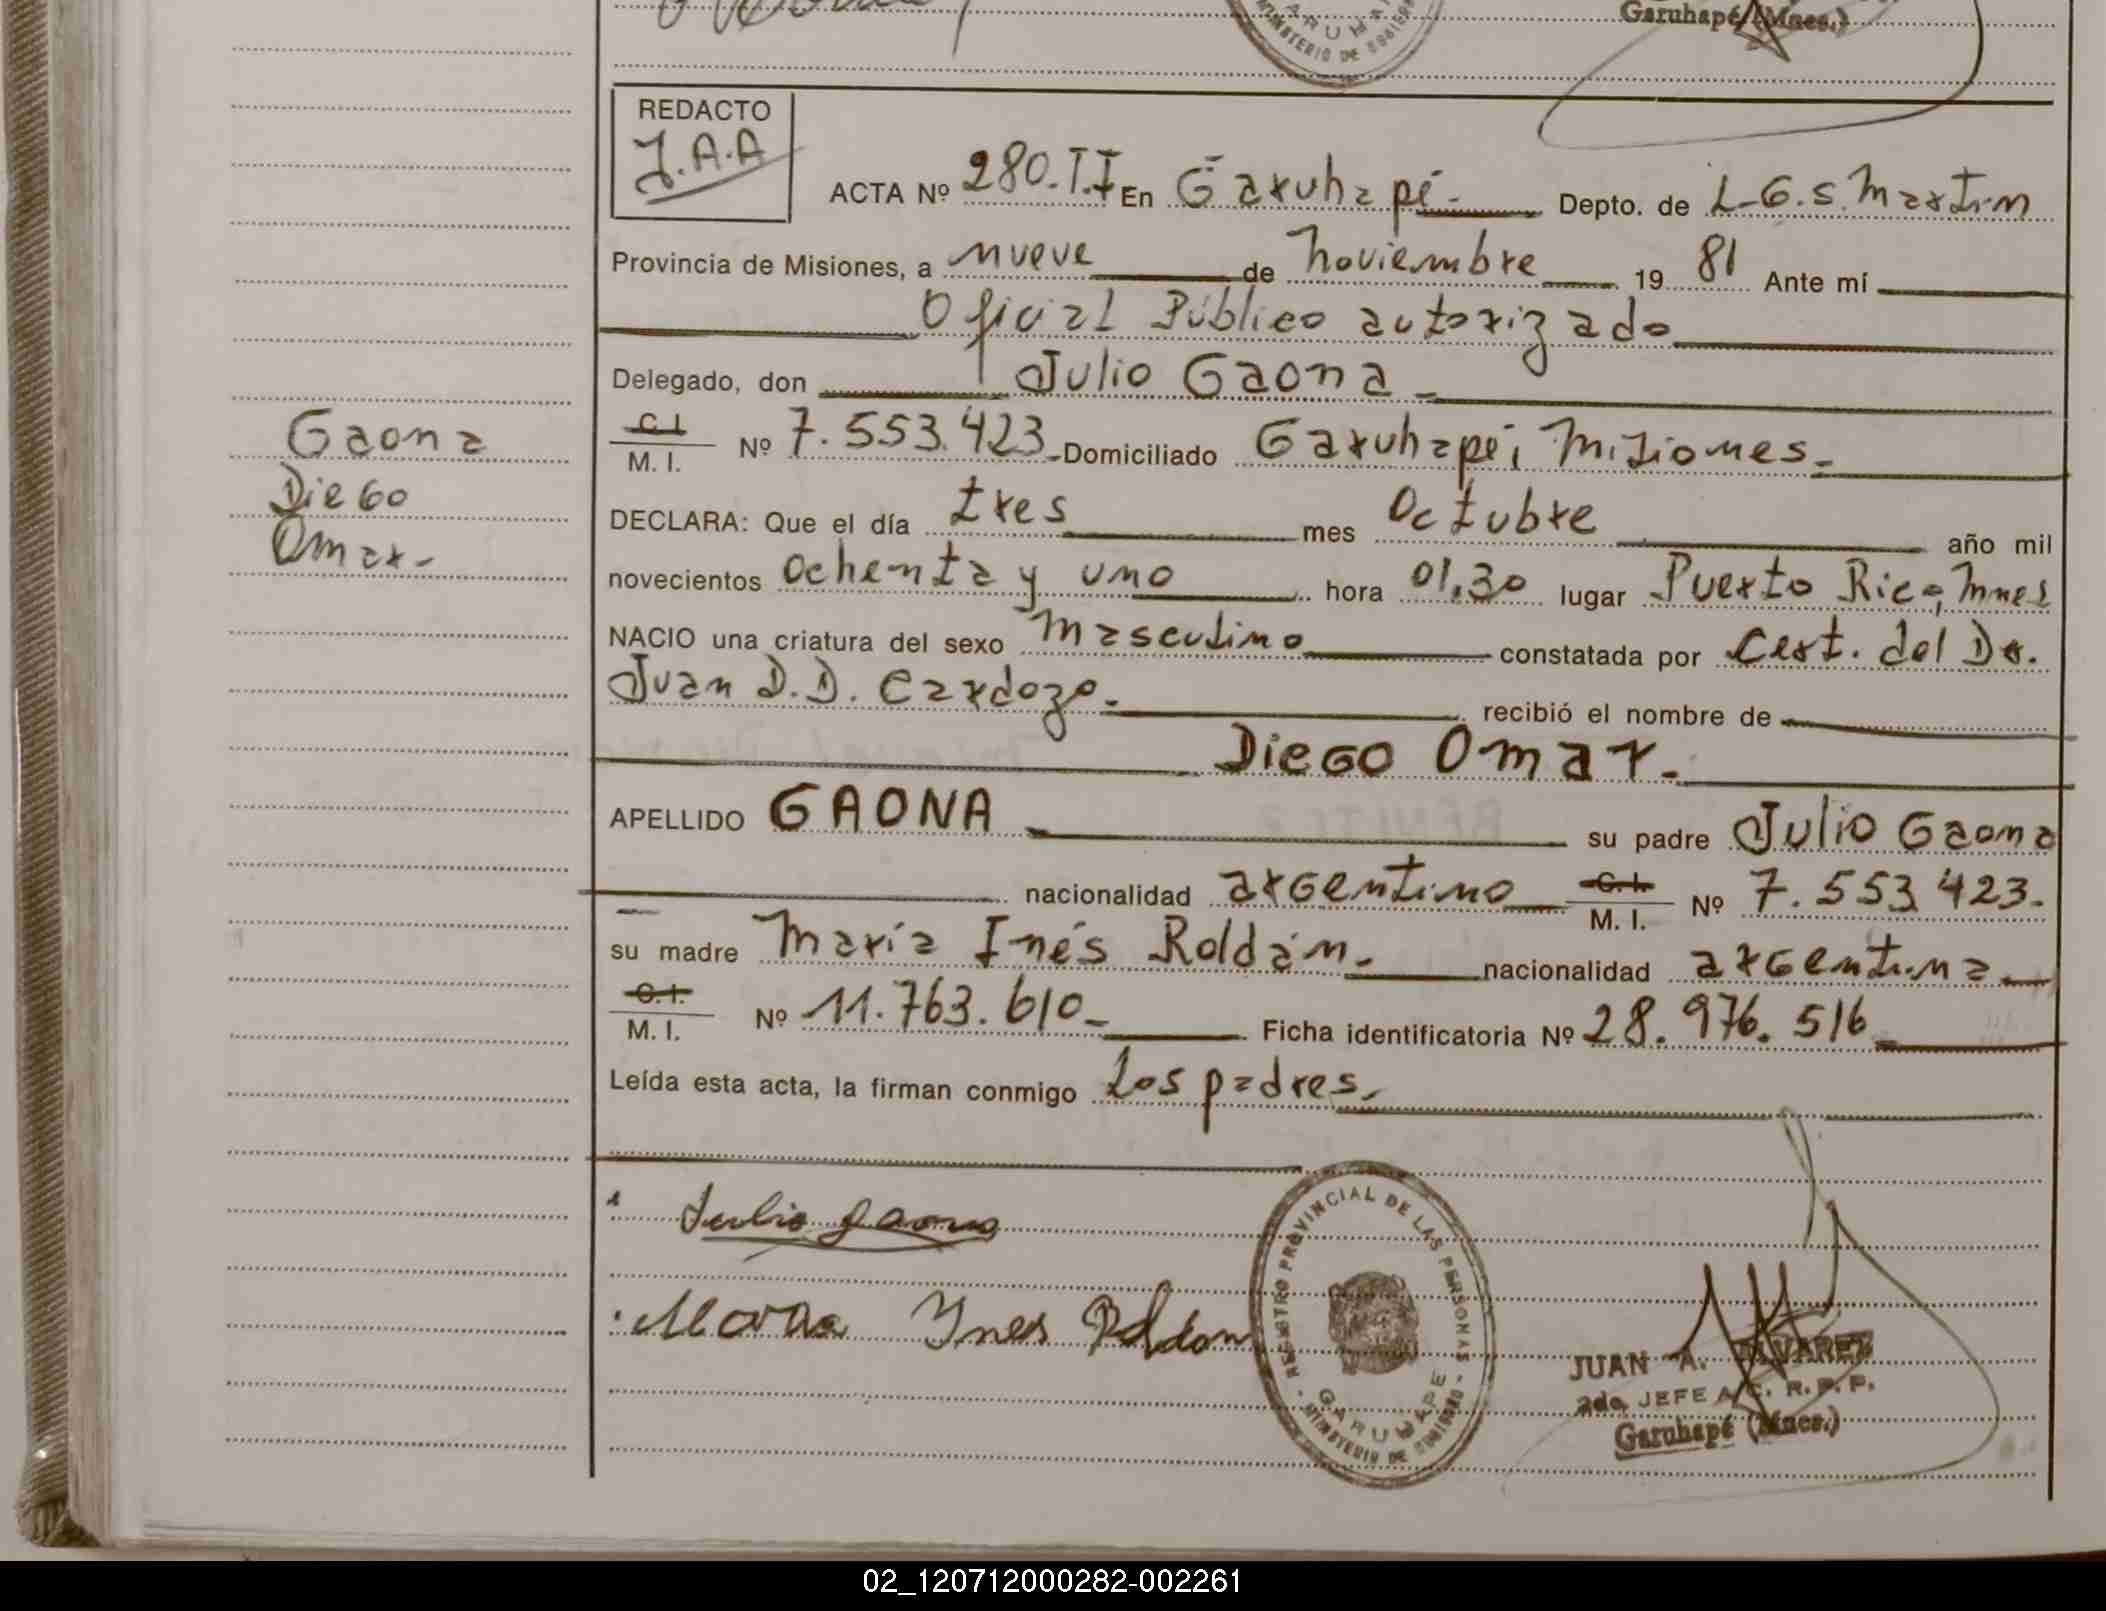 Garuhapé (Mnes.)
REDACTO
J.A.A
ACTA Nº 280.T.I En Garuhapé. Depto. de L.G.S.Martin
Provincia de Misiones, a nueve de noviembre 19 81 Ante mí
Oficial Público autorizado
Delegado, don Julio Gaona
C.I.
M. I. Nº 7.553.423 Domiciliado Garuhapé, Misiones.
DECLARA: Que el día tres mes Octubre año mil
novecientos ochenta y uno hora 01,30 lugar Puerto Rico, Mnes
NACIO una criatura del sexo masculino constatada por Cert. del Dr.
Juan D.D. Cardozo. recibió el nombre de
Diego Omar.
APELLIDO GAONA su padre Julio Gaona
nacionalidad argentino C.I.
M. I. Nº 7.553 423.
su madre María Inés Roldán. nacionalidad argentina
C.I.
M. I. Nº 11.763.610 Ficha identificatoria Nº 28.976.516
Leída esta acta, la firman conmigo Los padres.
Gaona
Diego
Omar
Julio Gaona
Maria Ynes Roldan
REGISTRO PROVINCIAL DE LAS PERSONAS
GARUHAPE
MINISTERIO DE GOBIERNO
JUAN A. ALVAREZ
2do. JEFE A/C. R.P.P.
Garuhapé (Mnes.)
02_120712000282-002261